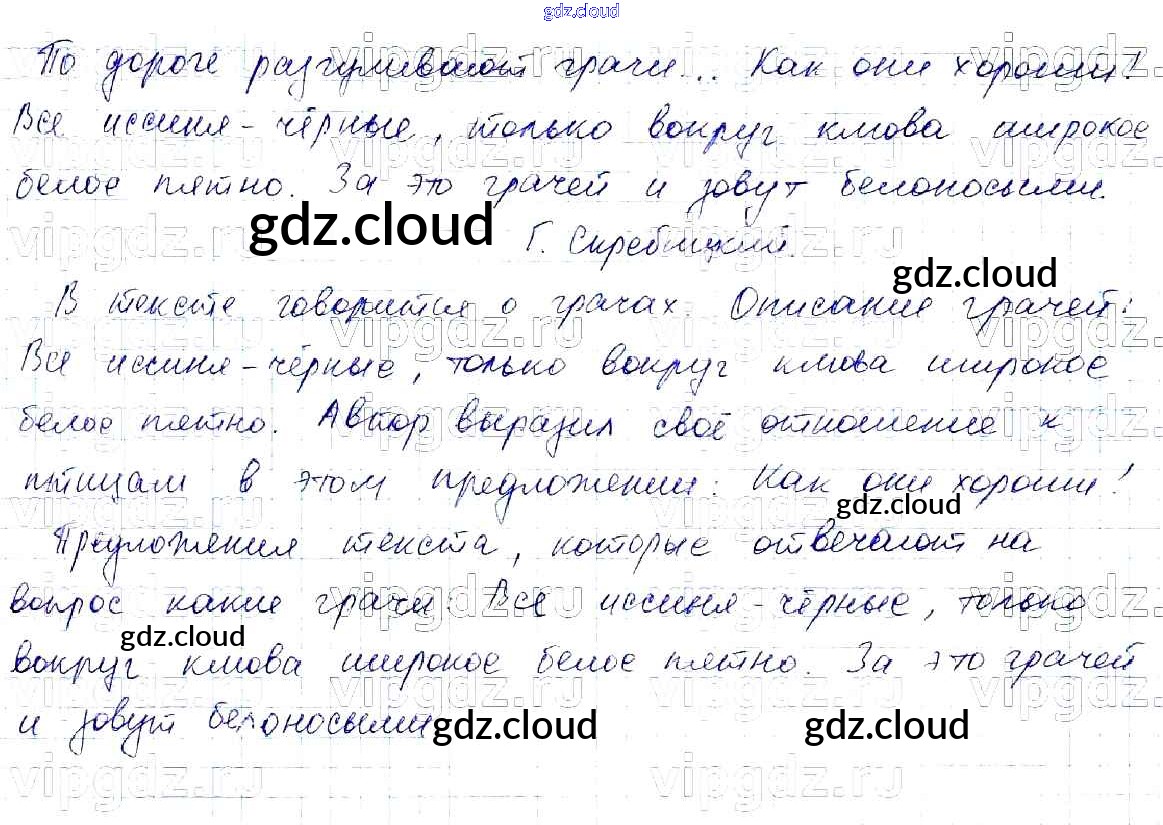 gdz.cloud
По дороге разгуливают грачи... Как они хороши!
Все иссиня-чёрные, только вокруг клюва широкое
белое пятно. За это грачей и зовут белоносыми.
gdz.cloud Г. Скребицкий.
gdz.cloud
В тексте говорится о грачах. Описание грачей:
Все иссиня-чёрные, только вокруг клюва широкое
белое пятно. Автор выразил своё отношение к
птицам в этом предложении: Как они хороши!
gdz.cloud
Предложения текста, которые отвечают на
вопрос какие грачи: Все иссиня-чёрные, только
gdz.cloud
вокруг клюва широкое белое пятно. За это грачей
и зовут белоносыми
gdz.cloud gdz.cloud
vipgdz.ru vipgdz.ru vipgdz.ru